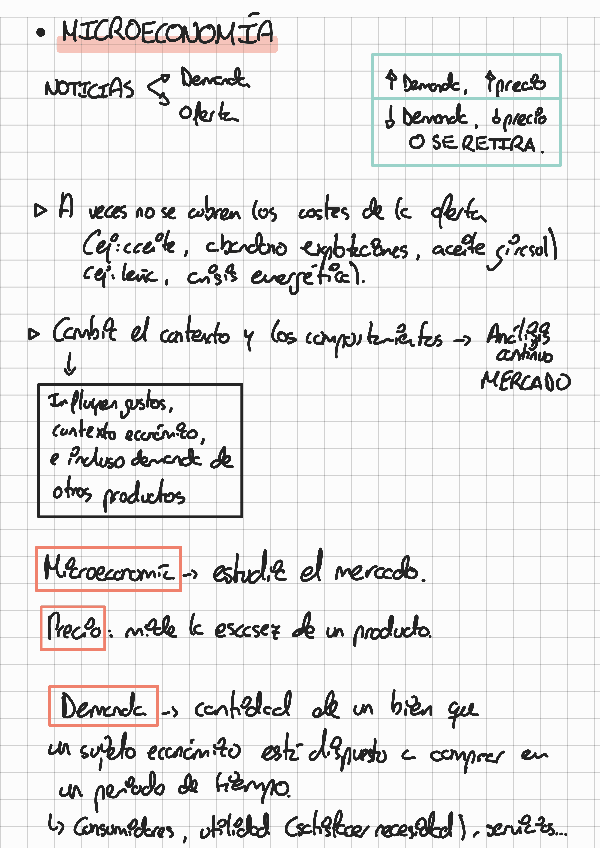 • MICROECONOMÍA
NOTICIAS < Demanda
Oferta
↑ Demanda, ↑ precio
↓ Demanda, ↓ precio
O SE RETIRA.
▷ A veces no se cubren los costes de la oferta
(ej: aceite, abandono explotaciones, aceite girasol)
(ej: leche, crisis energética).
▷ Cambia el contexto y los comportamientos → Análisis
continuo
MERCADO
↓
Influyen gustos,
contexto económico,
e incluso demanda de
otros productos
Microeconomía → estudia el mercado.
Precio: mide la escasez de un producto.
Demanda → cantidad de un bien que
un sujeto económico está dispuesto a comprar en
un periodo de tiempo.
↳ Consumidores, utilidad (satisfacer necesidad), servicios...